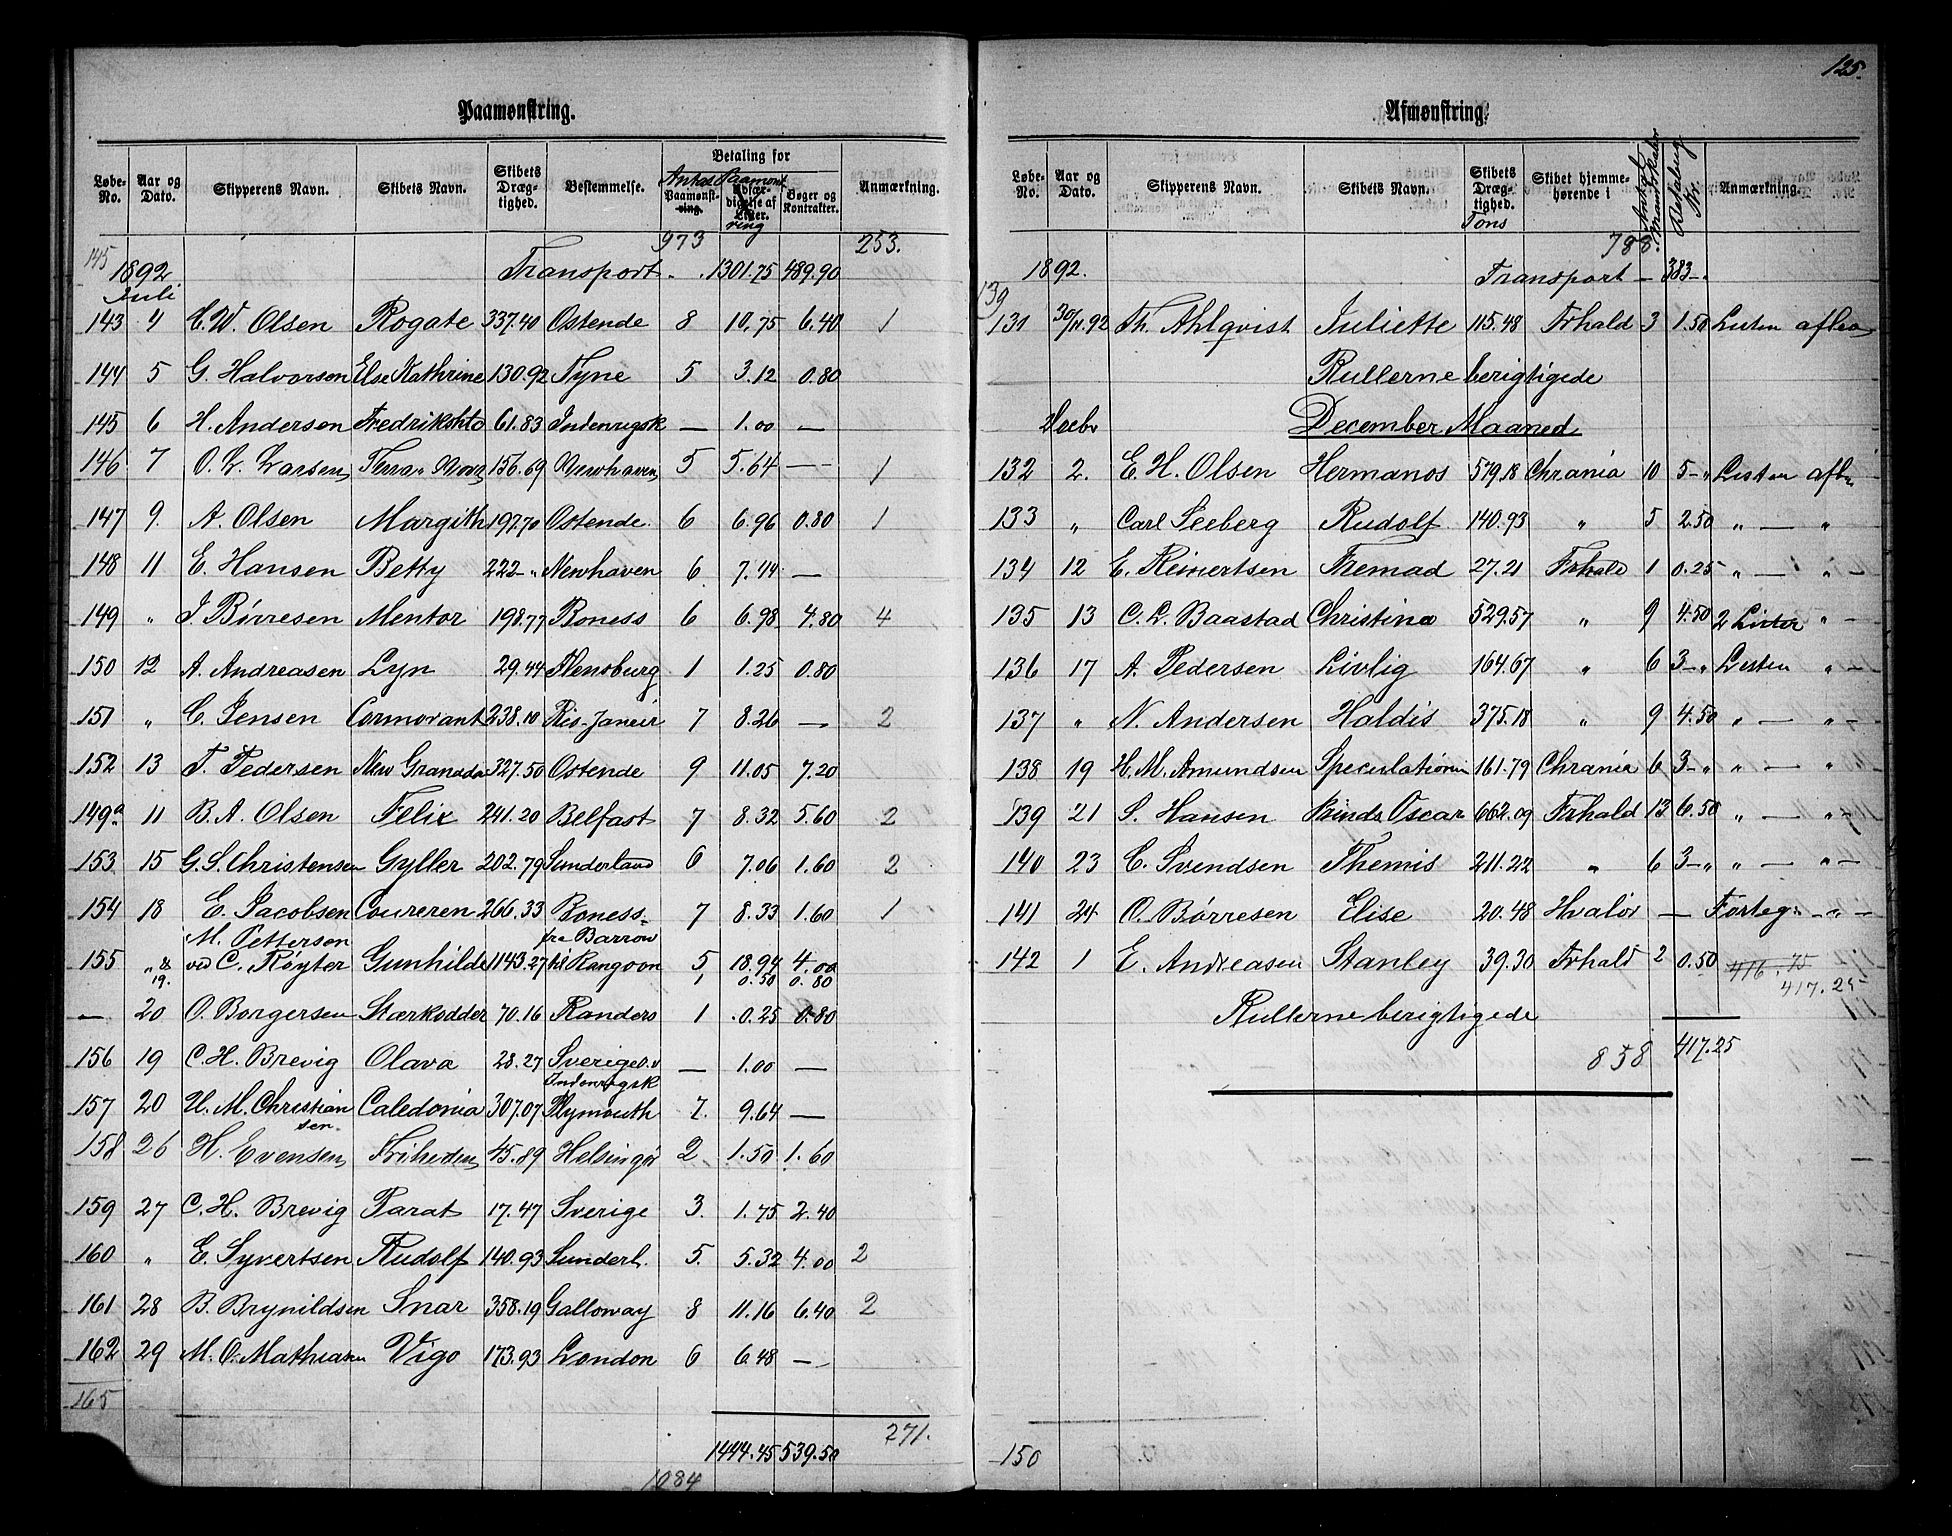 125.
Paamønstring.
Løbe-No. | Aar og Dato. | Skipperens Navn. | Skibets Navn. | Skibets Dræg-tighed. | Bestemmelse. | Betaling for | Antal Paamønst-ring. | Paamønst Udfær-digelse af | Bøger og Kontrakter. | Anmærkning.
973 253.
145 1892 Transport - 1301.75 489.90
Juli
143 4 C. W. Olsen Rogate 337.40 Ostende 8 10.75 6.40 1
144 5 G. Halvorsen Else Kathrine 130.92 Tyne 5 3.12 0.80
145 6 H. Andersen 61.83 Indenrigsk — 1.00 —
146 7 O. L. Larsen 156.69 Newhaven 5 5.64 — 1
147 9. A. Olsen Margith 197.70 Ostende. 6 6.96 0.80 1
148 11 E. Hansen Betty 222 - " Newhaven 6 7.44 —
149 " J Börresen Mentor 198.77 Boness 6 6.98 4.80 4
150 12 A. Andreasen Lyn 29.44 Flensburg 1 1.25 0.80
151 " C. Jensen Cormorant 238.10 Rio-Janeir 7 8.26 — 2
152 13 T. Pedersen New Granada 327.50 Ostende 9 11.05 7.20
149a 11 B. A. Olsen Felix 241.20 Belfast 7 8.32 5.60 2
153 15 G. S. Christensen Gyller 202.79 Sunderland 6 7.06 1.60 2
154 18 E. Jacobsen Coureren 266.33 Boness- 7 8.33 1.60 1
M. Pettersen fra Barrow
155 " & 19. ved C. Röyter Gunhilde 1143.27 til Rangoon 5 1 18.94 0.50 4.00 0.80
— 20 O. Borgersen Stærkodder 70.16 Randers 1 0.25 0.80
156 19 C. H. Brevig Olava 28.27 Sverige o.v — 1.00 —
Indenrigsk
157 20 U. M. Christian Caledonia 307.07 Plymouth 7. 9.64 —
sen.
158 26 H. Evensen Friheden 45.89 Helsingör 2 1.50 1.60
159 27 C. H. Brevig Parat 17.47 Sverige 3. 1.75 2.40
160 " E. Syvertsen Rudolf 140.93 Sunderl. 5. 5.32 4.00 2
161 28 B. Brynildsen Snar 358.19 Galloway 8 11.16 6.40 2
162 29 M. O. Mathiasen Vigo 173.93 London 6 6.48 —
165
271.
1444.45 539.50
1084
Afmønstring.
Løbe-No. | Aar og Dato. | Skipperens Navn. | Skibets Navn. | Skibets Dræg-tighed. Tons | Skibet hjemme-hørende i | Antal Mandskaber | Betaling Kr. | Anmærkning.
788.
1892. Transport — 383 -.
139
131 30/11.92 Th. Ahlqvist Juliette 115.48 Frhald 3 1.50 Listen
Rullerne berigtigede
Decbr December Maaned
132 2. E. H. Olsen Hermanos 579.18 Chrania 10 5 - " Listen
133 " Carl Seeberg Rudolf 140.93 " 5 2.50 " — "
134 12 E. Reinertsen Fremad 27.21 Frhald 1 0.25 " — " -
135 13 C. L. Baastad Christina 529.57 " 9 4.50 2 Lister " -
136 17 A. Pedersen Livlig 164.67 " 6 3 - " Listen " -
137 " N. Andersen Haldis 375.18 " 9 4.50 " — " -
138 19 H. M. Amundsen Speculationen 161.79 Chrania 6 3 - " " — "
139 21 S. Hansen Prinds Oscar 662.09 Frhald 13 6.50 " — " -
140 23 C. Svendsen Themis 211.22 " 6 3 - " " — " -
141 24 O. Börresen Elise 20.48 Hvalör — Forteg. - " -
142 1 E. Andreasen Stanley 39.30 Frhald 2 0.50 416.75
417.25
Rullerne berigtigede
858 417.25
150